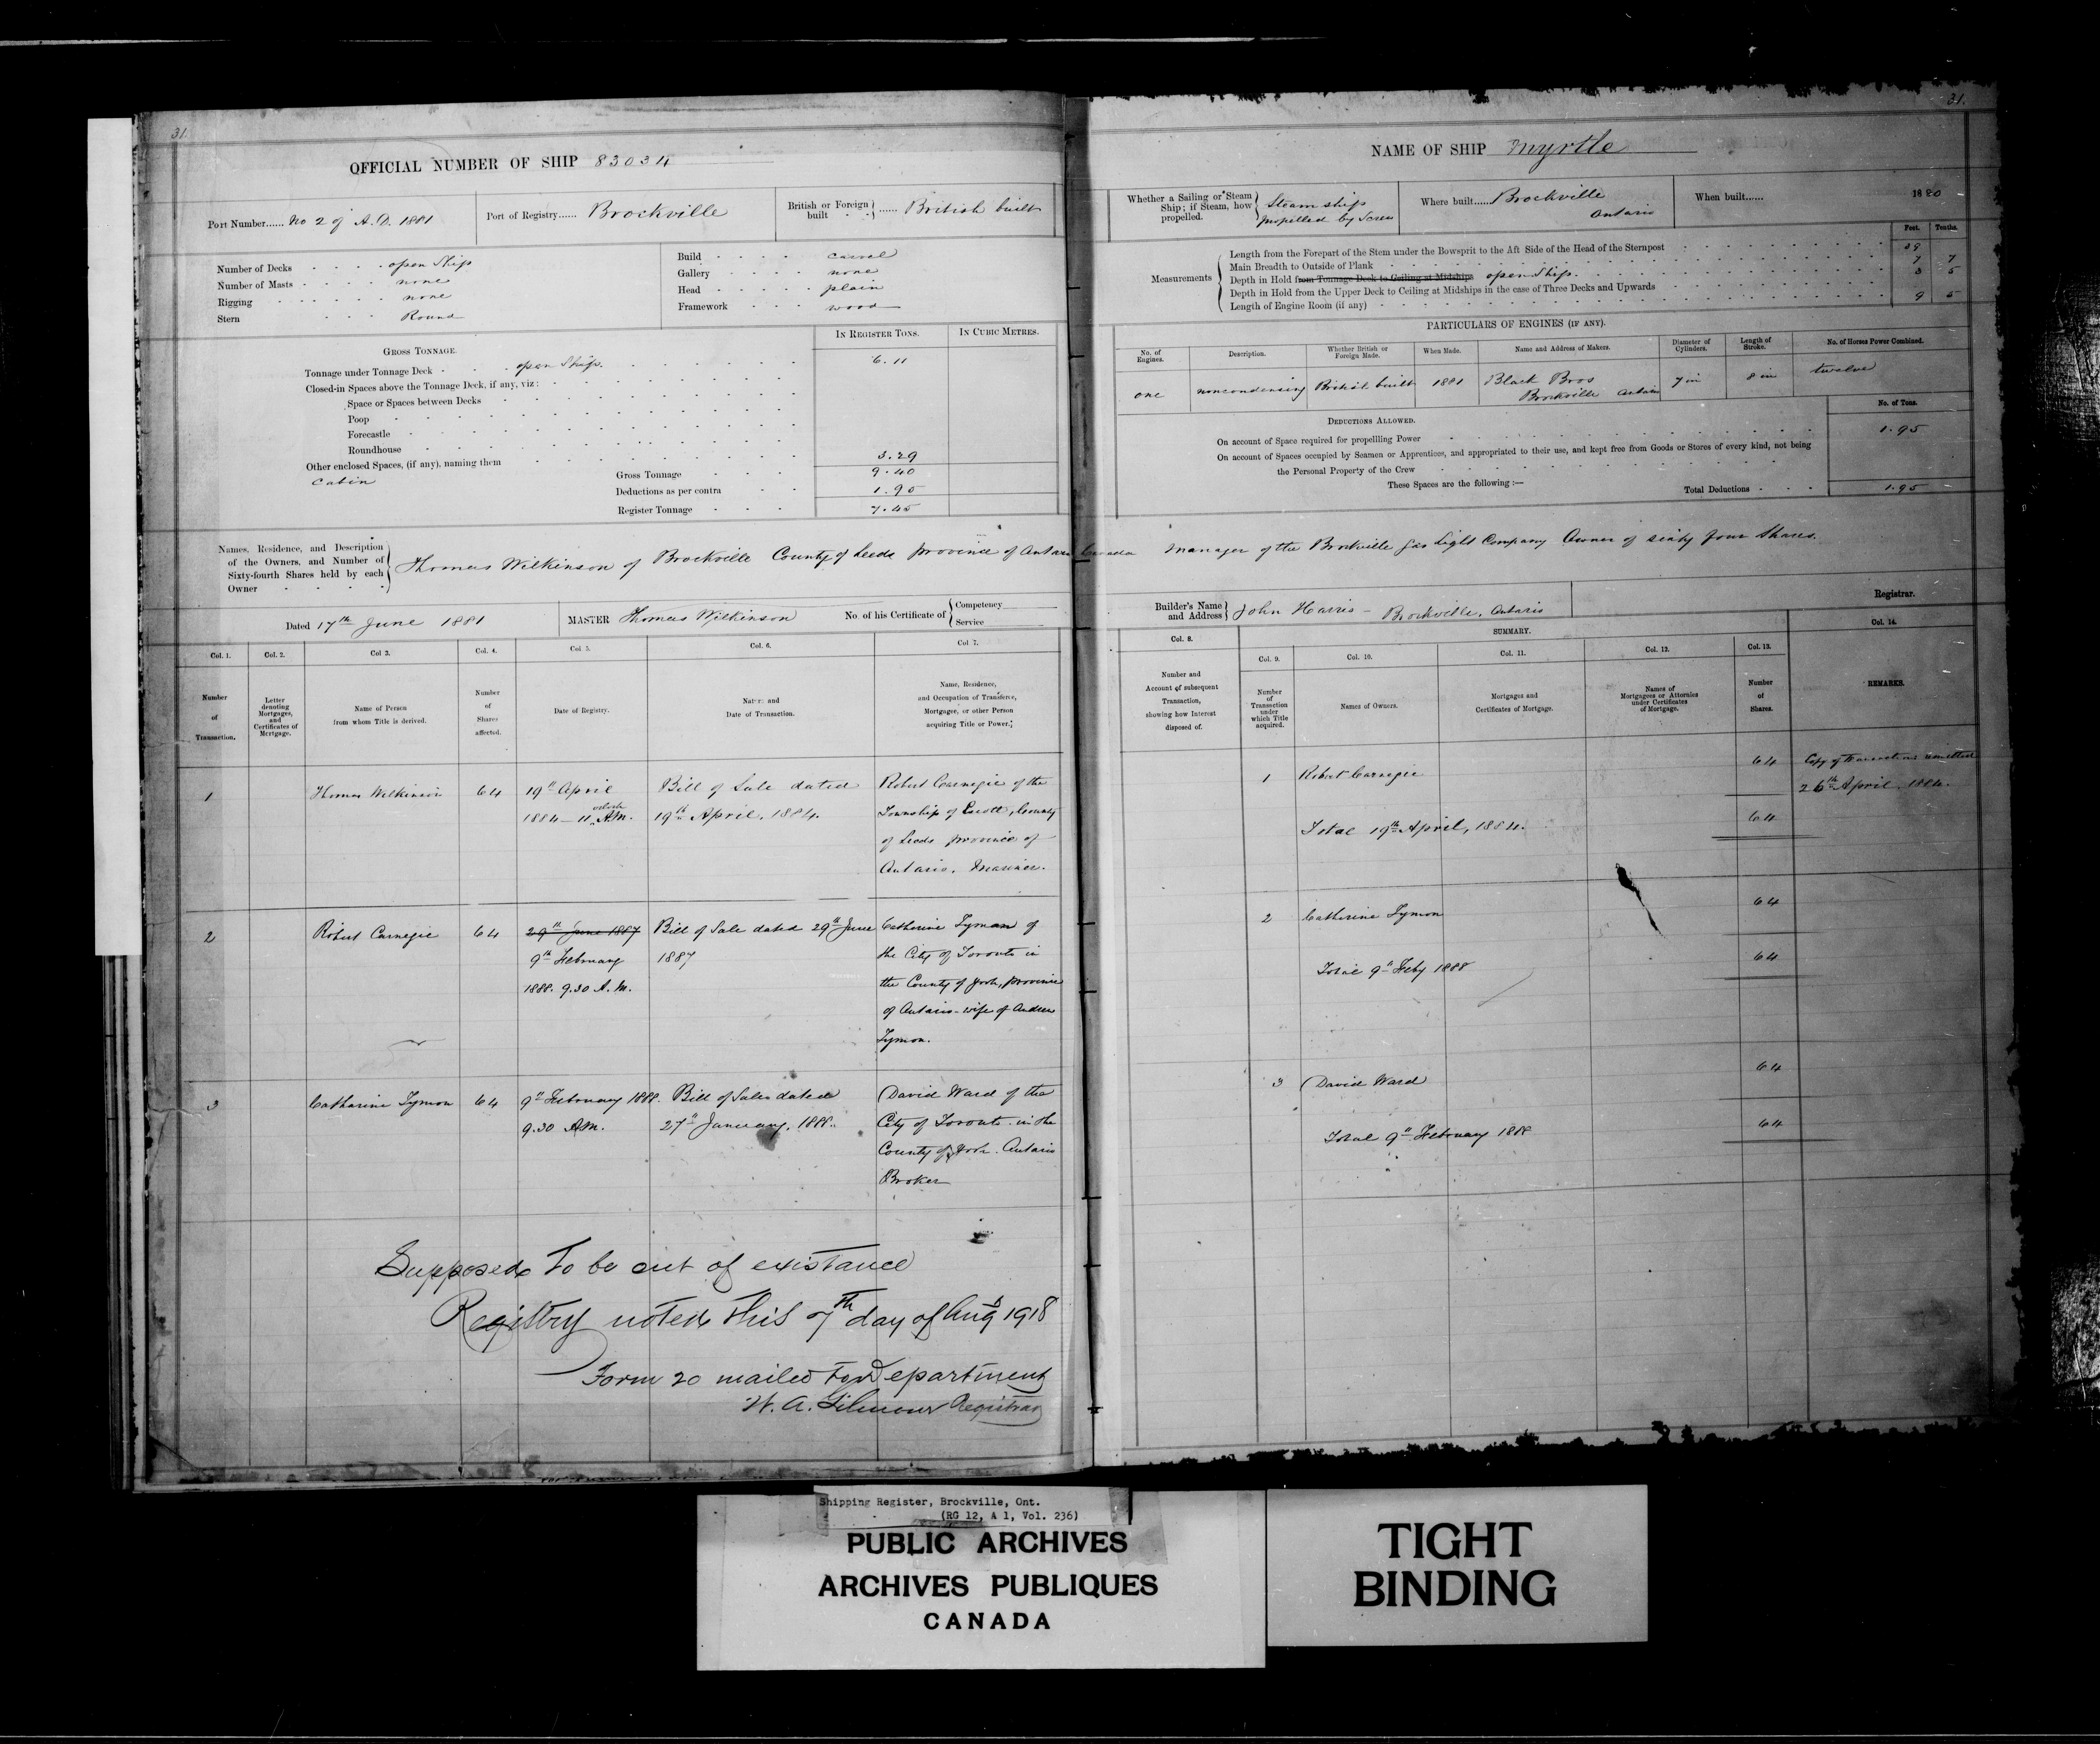 31.
OFFICIAL NUMBER OF SHIP 83034
Port Number...... No 2 of A.D. 1881
Port of Registry...... Brockville
British or Foreign built ...... British built
Number of Decks open Ship
Number of Masts none
Rigging none
Stern Round
Build carvel
Gallery none
Head plain
Framework wood
IN REGISTER TONS. IN CUBIC METRES.
GROSS TONNAGE.
Tonnage under Tonnage Deck open Ship. 6.11
Closed-in Spaces above the Tonnage Deck, if any, viz:
Space or Spaces between Decks
Poop
Forecastle
Roundhouse
Other enclosed Spaces, (if any), naming them 3.29
Cabin
Gross Tonnage 9.40
Deductions as per contra 1.95
Register Tonnage 7.45
Names, Residence, and Description
of the Owners, and Number of
Sixty-fourth Shares held by each
Owner
Thomas Wilkinson of Brockville County of Leeds Province of Ontario Canada Manager of the Brockville Gas Light Company Owner of sixty four Shares.
Dated 17th June 1881
MASTER Thomas Wilkinson
No. of his Certificate of
Competency
Service
Col. 1. Col. 2. Col 3. Col. 4. Col. 5. Col. 6. Col 7.
Number
of
Transaction.
Letter
denoting
Mortgages,
and
Certificates of
Mortgage.
Name of Person
from whom Title is derived.
Number
of
Shares
affected.
Date of Registry.
Nature and
Date of Transaction.
Name, Residence,
and Occupation of Transferee,
Mortgagee, or other Person
acquiring Title or Power.
1
Thomas Wilkinson
64
19th April
1884 - 11 oclock A.M.
Bill of Sale dated
19th April, 1884.
Robert Carnegie of the
Township of Escott, County
of Leeds province of
Ontario. Mariner.
2
Robert Carnegie
64
29th June 1887
9th February
1888. 9.30 A.M.
Bill of Sale dated 29th June
1887
Catherine Tymon of
the City of Toronto in
the County of York, province
of Ontario - wife of Andrew
Tymon.
3
Catharine Tymon
64
9th February 1888.
9.30 A.M.
Bill of Sale dated
27th January, 1888.
David Ward of the
City of Toronto in the
County of York. Ontario
Broker
Supposed To be out of existance
Registry noted this 7th day of Aug 1918
Form 20 mailed to Department
W. A. Gilmour Registrar
31.
NAME OF SHIP Myrtle
Whether a Sailing or Steam
Ship; if Steam, how
propelled.
Steam ship
propelled by Screw
Where built..... Brockville
Ontario
When built...... 1880
Feet. Tenths.
Measurements
Length from the Forepart of the Stem under the Bowsprit to the Aft Side of the Head of the Sternpost 39
Main Breadth to Outside of Plank 7 7
Depth in Hold from Tonnage Deck to Ceiling at Midships open Ship. 3 5
Depth in Hold from the Upper Deck to Ceiling at Midships in the case of Three Decks and Upwards
Length of Engine Room (if any) 9 5
PARTICULARS OF ENGINES (IF ANY).
No. of
Engines.
Description.
Whether British or
Foreign Made.
When Made.
Name and Address of Makers.
Diameter of
Cylinders.
Length of
Stroke.
No. of Horses Power Combined.
one
noncondensing
British built
1881
Black Bros
Brockville Ontario
7 in
8 in
twelve
DEDUCTIONS ALLOWED.
No. of Tons.
On account of Space required for propelling Power 1.95
On account of Spaces occupied by Seamen or Apprentices, and appropriated to their use, and kept free from Goods or Stores of every kind, not being
the Personal Property of the Crew
These Spaces are the following :—
Total Deductions 1.95
Builder's Name
and Address
John Harris - Brockville, Ontario
Registrar.
Col. 8.
SUMMARY.
Col. 14.
Col. 9. Col. 10. Col. 11. Col. 12. Col. 13.
Number and
Account of subsequent
Transaction,
showing how Interest
disposed of.
Number
of
Transaction
under
which Title
acquired.
Names of Owners.
Mortgages and
Certificates of Mortgage.
Names of
Mortgagees or Attornies
under Certificates
of Mortgage.
Number
of
Shares.
REMARKS.
1
Robert Carnegie
64
Copy of transactions transmitted
26th April. 1884.
Total 19th April, 1884.
64
2
Catherine Tymon
64
Total 9th Feby 1888
64
3
David Ward
64
Total 9th February 1888
64
Shipping Register, Brockville, Ont.
(RG 12, A 1, Vol. 236)
PUBLIC ARCHIVES
ARCHIVES PUBLIQUES
CANADA
TIGHT
BINDING